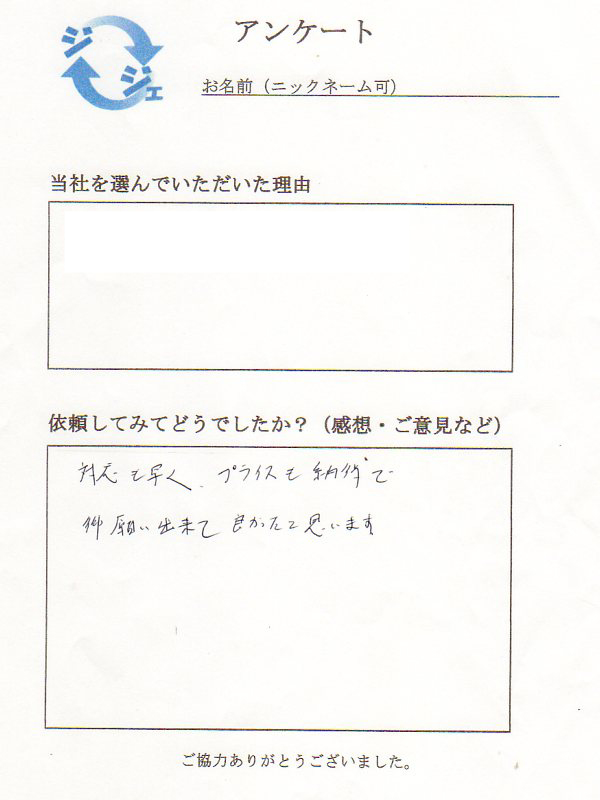 ジ
ジェ
アンケート
お名前（ニックネーム可）
当社を選んでいただいた理由
依頼してみてどうでしたか？（感想・ご意見など）
対応も早く、プライスも納得で
御願い出来て良かったと思います
ご協力ありがとうございました。